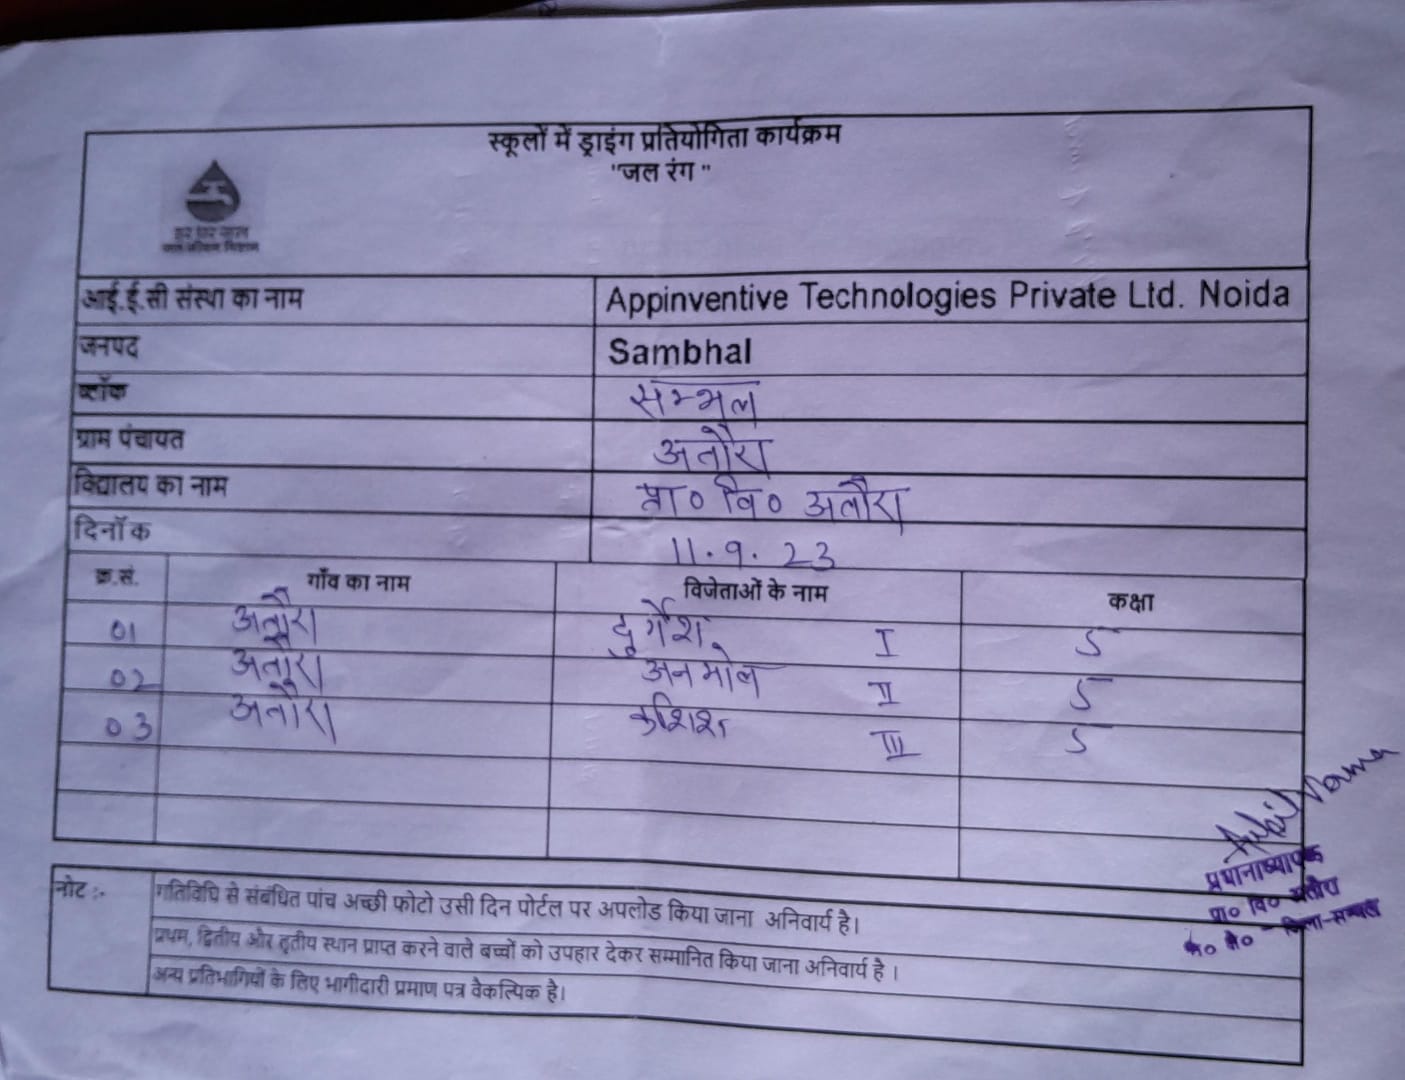 स्कूलों में ड्राइंग प्रतियोगिता कार्यक्रम
"जल रंग "
हर घर जल
जल जीवन मिशन
आई.ई.सी संस्था का नाम Appinventive Technologies Private Ltd. Noida
जनपद Sambhal
ब्लॉक सम्भल
ग्राम पंचायत अतौरा
विद्यालय का नाम प्रा० वि० अतौरा
दिनॉक 11.9.23
क्र.सं. गाँव का नाम विजेताओं के नाम कक्षा
01 अतौरा दुर्गेश I 5
02 अतौरा अनमोल II 5
03 अतौरा कशिश III 5
प्रधानाध्यापक
प्रा० वि० अतौरा
जिला-सम्भल
नोट :- गतिविधि से संबंधित पांच अच्छी फोटो उसी दिन पोर्टल पर अपलोड किया जाना अनिवार्य है।
प्रथम, द्वितीय और तृतीय स्थान प्राप्त करने वाले बच्चों को उपहार देकर सम्मानित किया जाना अनिवार्य है ।
अन्य प्रतिभागियों के लिए भागीदारी प्रमाण पत्र वैकल्पिक है।